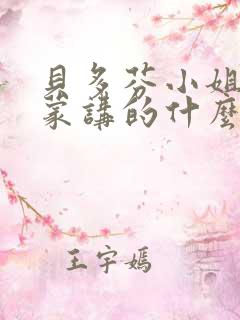 貝多芬小姐
蒙講的什麼
王宇嫣